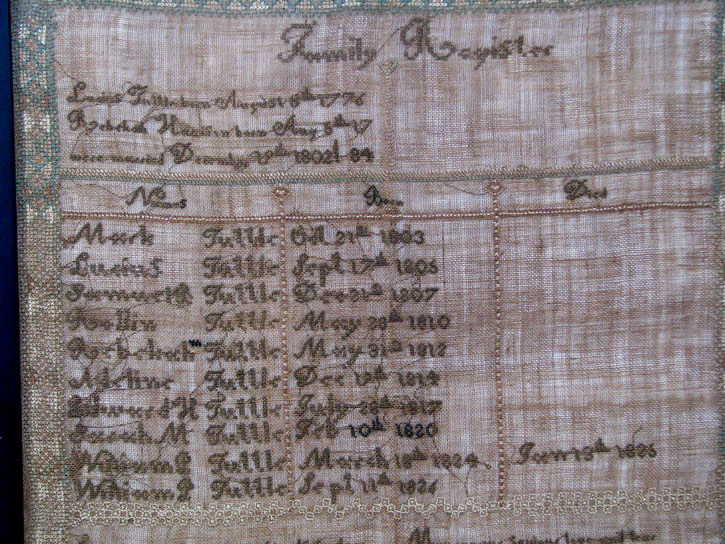 Family Register
Lucius Tuttle born August 6th 1776
Rebekah born Aug 5th 17
were married 1802 84
Names Born Died
Mark Tuttle Oct 21th 1803
Lucius Tuttle Sept 17th 1805
Samuel Tuttle Dec 31th 1807
Rollin Tuttle May 28th 1810
Rebekah Tuttle May 31th 1812
Adeline Tuttle Dec 12th 1814
Edward H Tuttle July 28th 1817
Sarah M Tuttle Feb 10th 1820
William Tuttle March 18th 1824 Jan 13th
William Tuttle Sept 11th